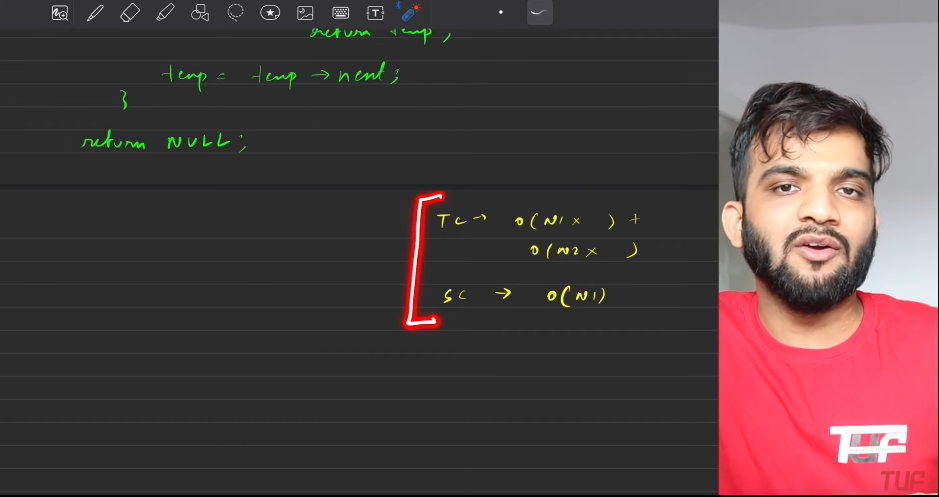 return temp;
temp = temp → next;
}
return NULL;
TC → O(N1 x ) +
O(N2 x )
SC → O(N1)
TUF
TUF